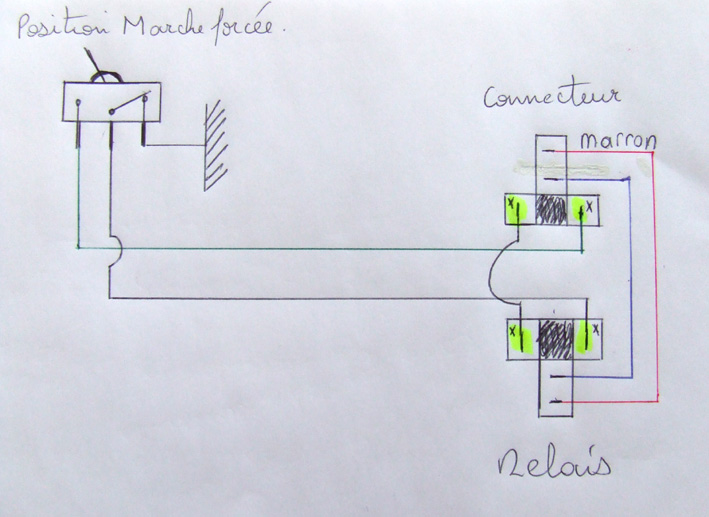 Position Marche forcée.
Connecteur
marron
x x
x x
Relais